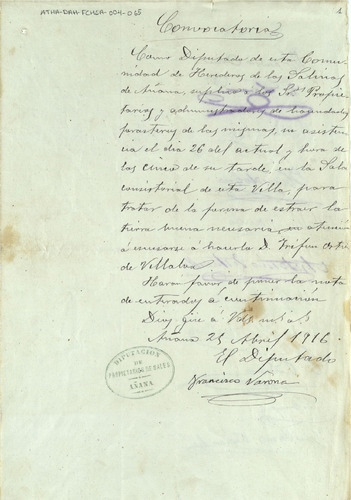 ATHA-DAH-FCHSA-004-065
Convocatoria
Como Diputado de esta Comu-
nidad de Herederos de las Salinas
de Añana, suplico a los Sres Propie-
tarios y administradores de haciendas
forasteros de las mismas, su asisten-
cia el dia 26 del actual y hora de
las cinco de su tarde, en la Sala
consistorial de esta Villa, para
tratar de la persona de extraer la
tierra buena necesaria, en atención
á escusarse á hacerlo D.
de Villalva
Harán favor de poner la nota
de enterados á continuación
Dios gue á Vds
Añana 25 Abril 1916
El Diputado
Francisco Varona
DIPUTACION
DE
PROPIETARIOS DE SALES
AÑANA